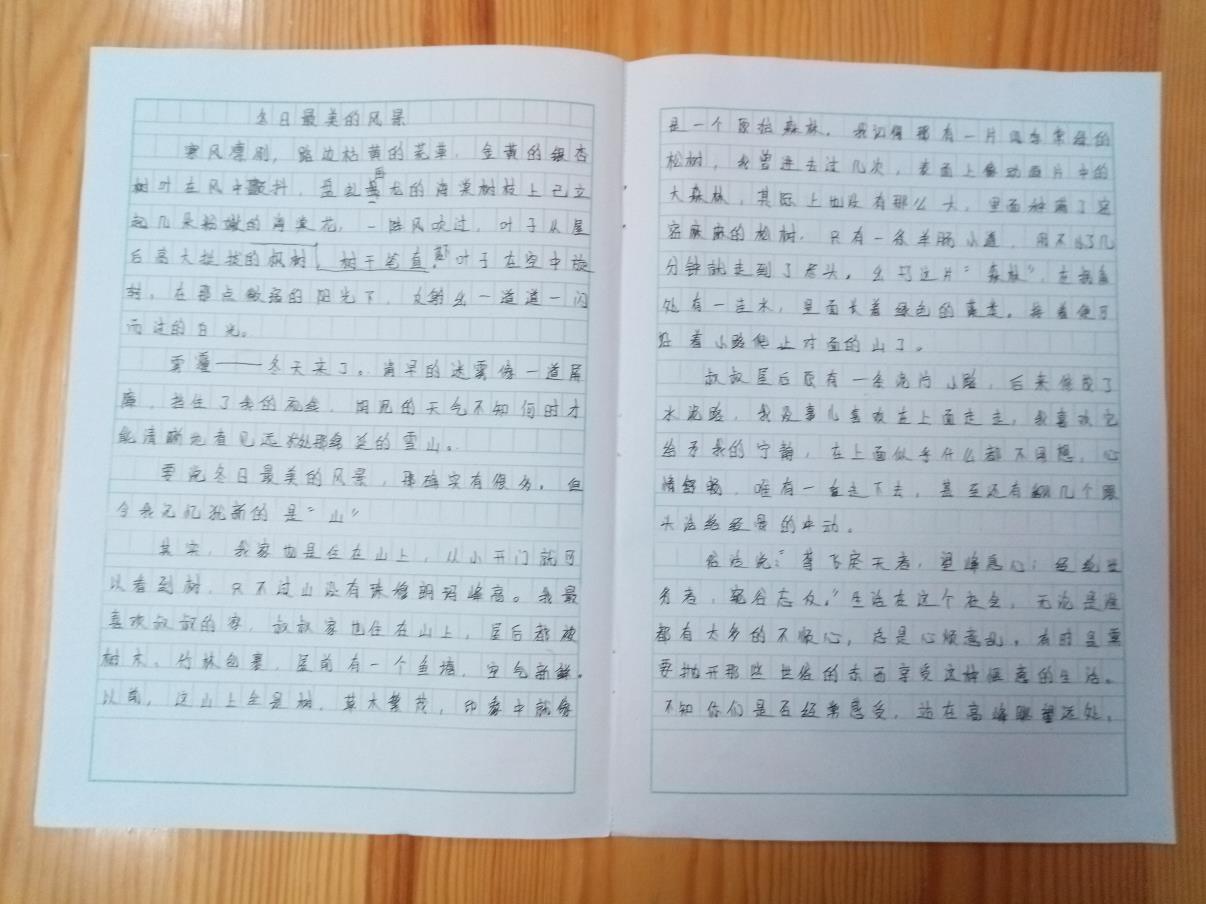 冬日最美的风景
寒风凛冽，路边枯黄的荒草，金黄的银杏
树叶在风中颤抖，盘虬的海棠树枝上已立
起几朵粉嫩的海棠花，一阵风吹过，叶子从屋
后高大挺拔的枫树，树干笔直，叶子在空中旋
转，在那点微弱的阳光下，反射出一道道一闪
而过的白光。
雾霾——冬天来了。清早的迷雾像一道屏
障，挡住了我的视线，阴晃的天气不知何时才
能清晰地看见远处那绵延的雪山。
要说冬日最美的风景，那确实有很多。但
令我记忆犹新的是“山”
其实，我家也是住在山上，从小开门就可
以看到树，只不过山没有珠穆朗玛峰高。我最
喜欢叔叔的家，叔叔家也住在山上，屋后都被
树木、竹林包裹，屋前有一个鱼塘，空气新鲜。
以前，这山上全是树，草木繁茂，印象中就像
是一个原始森林。我记得那有一片四季常绿的
松树，我曾进去过几次，表面上像动画片中的
大森林，其际上也没有那么大，里面种满了密
密麻麻的松树，只有一条羊肠小道，用不了几
分钟就走到了尽头。出了这片“森林”，在拐角
处有一洼水，里面长着绿色的青苔。接着便可
沿着小路爬上对面的山了。
叔叔屋后原有一条泥泞小路，后来修成了
水泥路，我没事儿喜欢在上面走走，我喜欢它
给予我的宁静，在上面似乎什么都不用想，心
情舒畅，唯有一直走下去，甚至还有翻几个跟
头活络经骨的冲动。
俗话说：“鸢飞戾天者，望峰息心；经纶世
务者，窥谷忘反。”生活在这个社会，无论是谁
都有太多的不顺心，总是心烦意乱。有时是需
要抛开那些世俗的东西享受这种惬意的生活。
不知你们是否经常感受，站在高峰眺望远处，